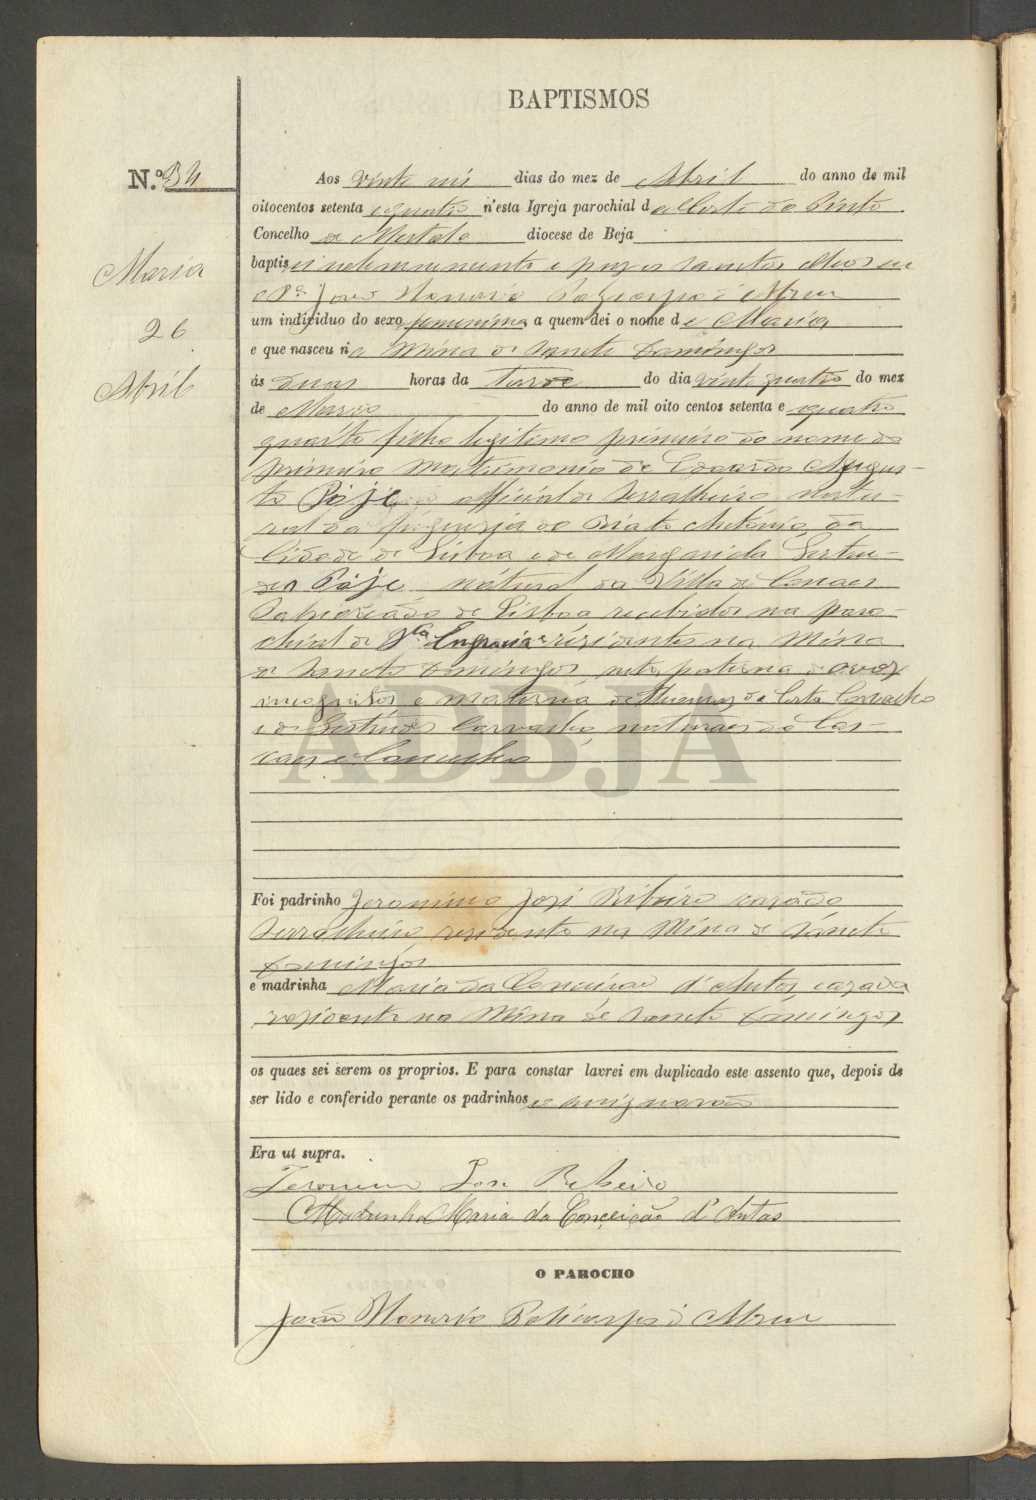 BAPTISMOS
N.º 34
Aos vinte seis dias do mez de Abril do anno de mil
oitocentos setenta e quatro n'esta Igreja parochial d a Corte do Pinto
Concelho de Mertola diocese de Beja
Maria
baptisei solemnemente e puz os sanctos oleos eu
o P.e João Honorio Policarpo d'Abreu
26
um individuo do sexo femenino, a quem dei o nome de Maria
e que nasceu na Mina de Sancto Domingos
Abril
ás duas horas da tarde do dia vinte quatro do mez
de Março do anno de mil oito centos setenta e quatro
quarto filho legitimo primeiro do nome do
primeiro matrimonio de Eduardo Augus-
to Paje official de serralheiro natu-
ral da freguezia do Beato Antonio, da
Cidade de Lisboa e de Margarida Gertru-
des Paje natural da Villa de
de Lisboa recebidos na paro-
chial de S.ta Engracia e rezidentes na Mina
de Sancto Domingos, neta paterna de avoz
incognitos e materna de da Costa Carvalho
e de Gertrudes Carvalho, naturaes de Cas-
caes e
Foi padrinho Jeronimo José Ribeiro cazado
serralheiro rezidente na Mina de Sancto
Domingos
e madrinha Maria da Conceicão d'Antas, cazada
rezidente na Mina de Sancto Domingos
os quaes sei serem os proprios. E para constar lavrei em duplicado este assento que, depois de
ser lido e conferido perante os padrinhos e assignarão
Era ut supra.
Jeronimo Jose Ribeiro
Madrinha Maria da Conceição d'Antas
O PAROCHO
João Honorio Policarpo d'Abreu
ADBJA